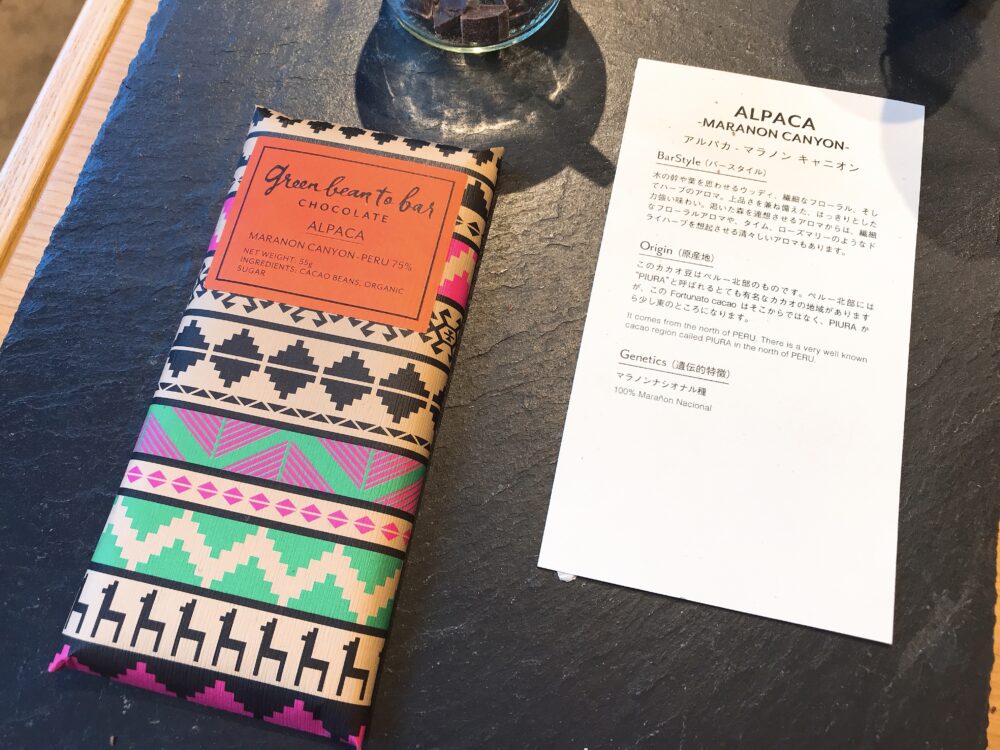 green bean to bar
CHOCOLATE
ALPACA
MARANON CANYON-PERU 75%
NET WEIGHT: 55g
INGREDIENTS: CACAO BEANS, ORGANIC
SUGAR
ALPACA
-MARANON CANYON-
アルパカ - マラノン キャニオン
BarStyle（バースタイル）
木の幹や葉を思わせるウッディ、繊細なフローラル、そし
てハーブのアロマ。上品さを兼ね備えた、はっきりとした
力強い味わい。渇いた森を連想させるアロマからは、繊細
なフローラルアロマや、タイム、ローズマリーのようなド
ライハーブを想起させる清々しいアロマもあります。
Origin（原産地）
このカカオ豆はペルー北部のものです。ペルー北部には
"PIURA"と呼ばれるとても有名なカカオの地域があります
が、この Fortunato cacao はそこからではなく、PIURA か
ら少し東のところになります。
It comes from the north of PERU. There is a very well known
cacao region called PIURA in the north of PERU.
Genetics（遺伝的特徴）
マラノンナシオナル種
100% Marañon Nacional